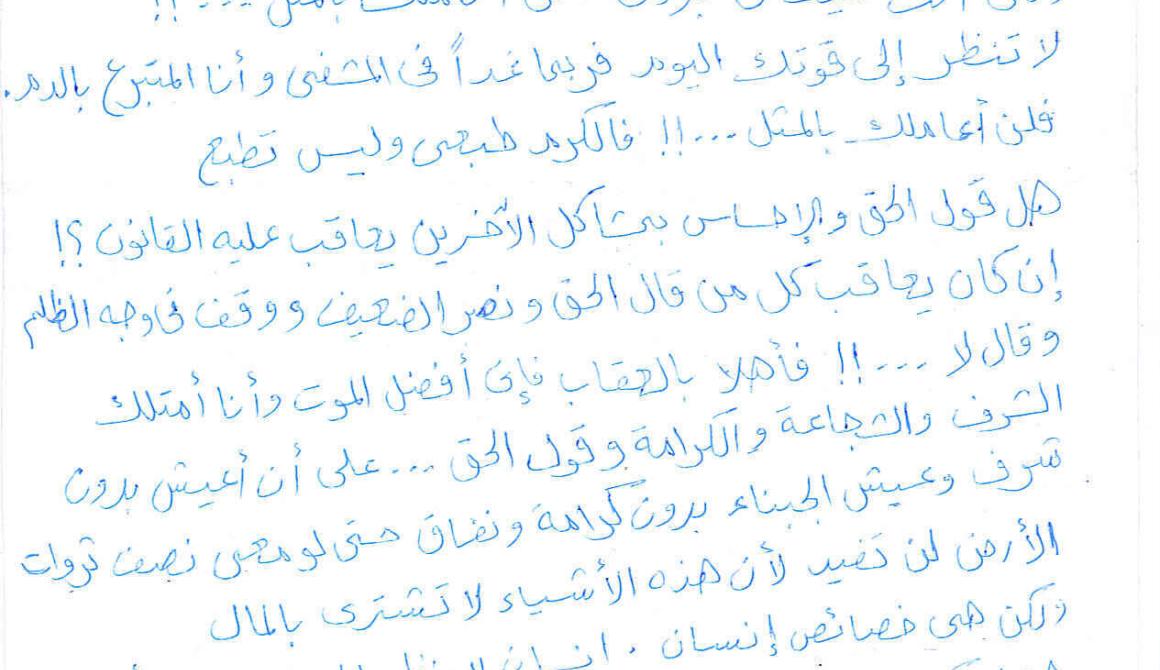 لا تنظر إلى قوتك اليوم فربما غداً فى المشفى وأنا المتبرع بالدم.
فلن أعاملك بالمثل ...!! فالكرم طبعى وليس تطبع
هل قول الحق والإحساس بمشاكل الآخرين يعاقب عليه القانون ؟!
إن كان يعاقب كل من قال الحق ونصر الضعيف ووقف فى وجه الظلم
وقال لا ...!! فأهلا بالعقاب فإنى أفضل الموت وأنا أمتلك
الشرف والشجاعة والكرامة وقول الحق ... على أن أعيش بدون
شرف وعيش الجبناء بدون كرامة ونفاق حتى لو معى نصف ثروات
الأرض لن تفيد لأن هذه الأشياء لا تشترى بالمال
ولكن هى خصائص إنسان . إنسان